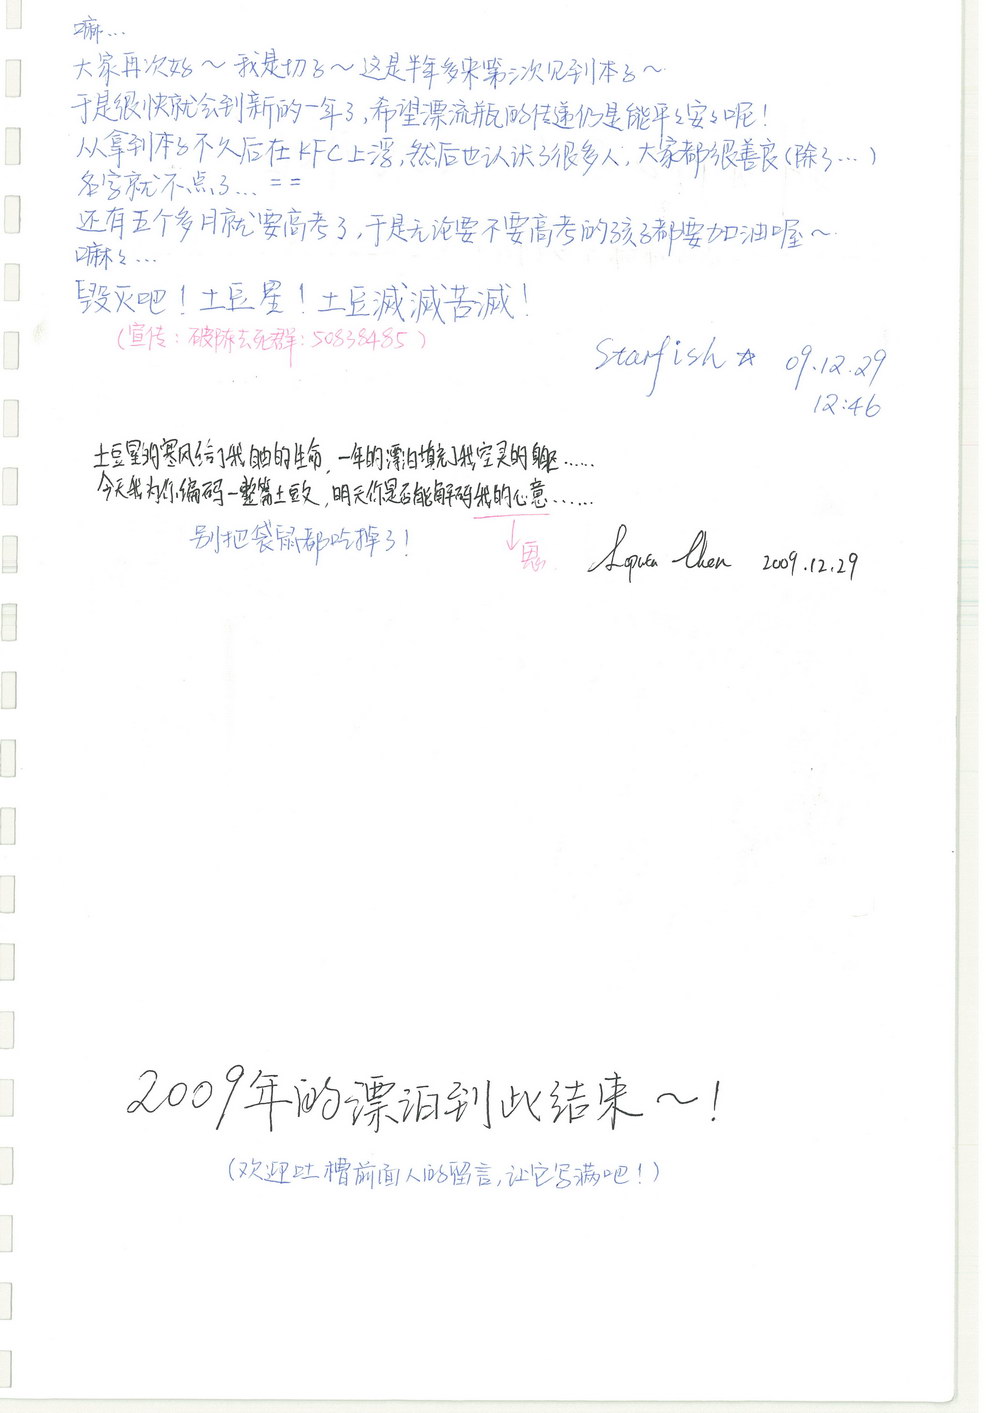 嘛…
大家再次好～我是切了～这是半年多来第二次见到本了～
于是很快就会到新的一年了,希望漂流瓶的传递仍是能平々安々呢！
从拿到本了不久后在KFC上浮,然后也认识了很多人,大家都很善良(除了…)
名字就不点了… ==
还有五个多月就要高考了,于是无论要不要高考的孩子都要加油喔～
嘛々…
毁灭吧！土豆星！土豆滅滅苦滅！
(宣传：破除去死群：50838485)
Starfish ☆ 09.12.29
12:46
土豆星的寒风给了我自由的生命,一年的漂泊填充了我空灵的身躯……
今天我为你编码一整篇土豆文,明天你是否能解码我的心意……
别把袋鼠都吃掉了！
Chen 2009.12.29
2009年的漂泊到此结束～！
(欢迎吐槽前面人的留言,让它写满吧！)